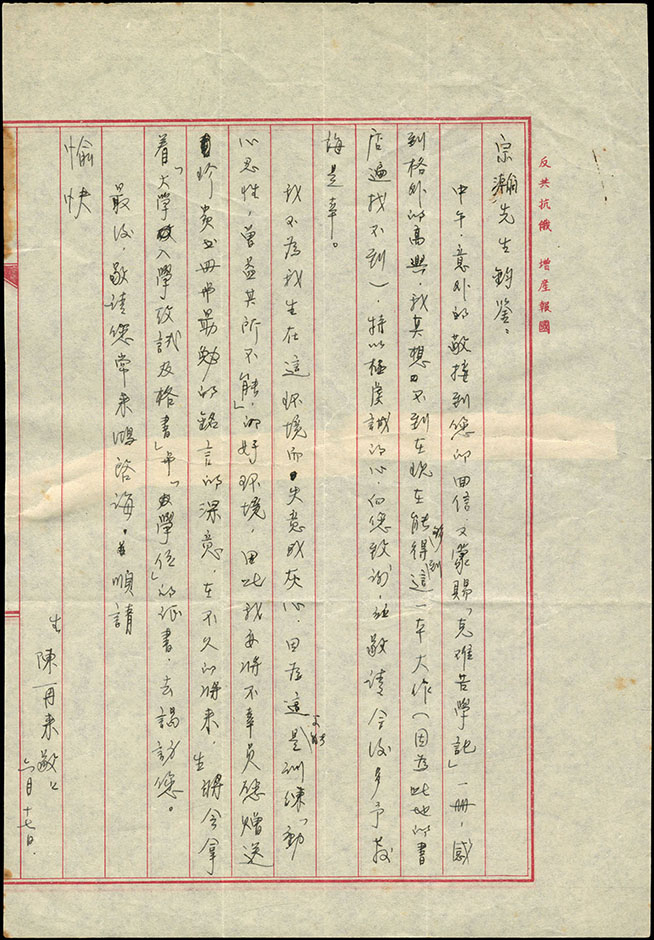 反共抗俄 增產報國
宗瀚先生鈞鑒：
中午，意外的敬接到您的回信，又蒙賜「克難苦學記」一冊，感
到格外的高興，我真想不到在現在能夠得到這一本大作（因為此地的書
店遍找不到），特以極虔誠的心，向您致謝，並敬請今後多予教
誨是幸。
我不為我生在這環境而失意或灰心，因為這是才能訓練「動
心忍性，曾益其所不能」的好環境，因此我必將不辜負您贈送
珍貴書冊與勗勉的銘言的深意，在不久的將來，生將會拿
着「大學入學攷試及格書」與「大學學位」的証書，去謁訪您。
最後，敬請您常來鴻啓誨，並順請
愉快
生 陳再來敬上
六月十七日．